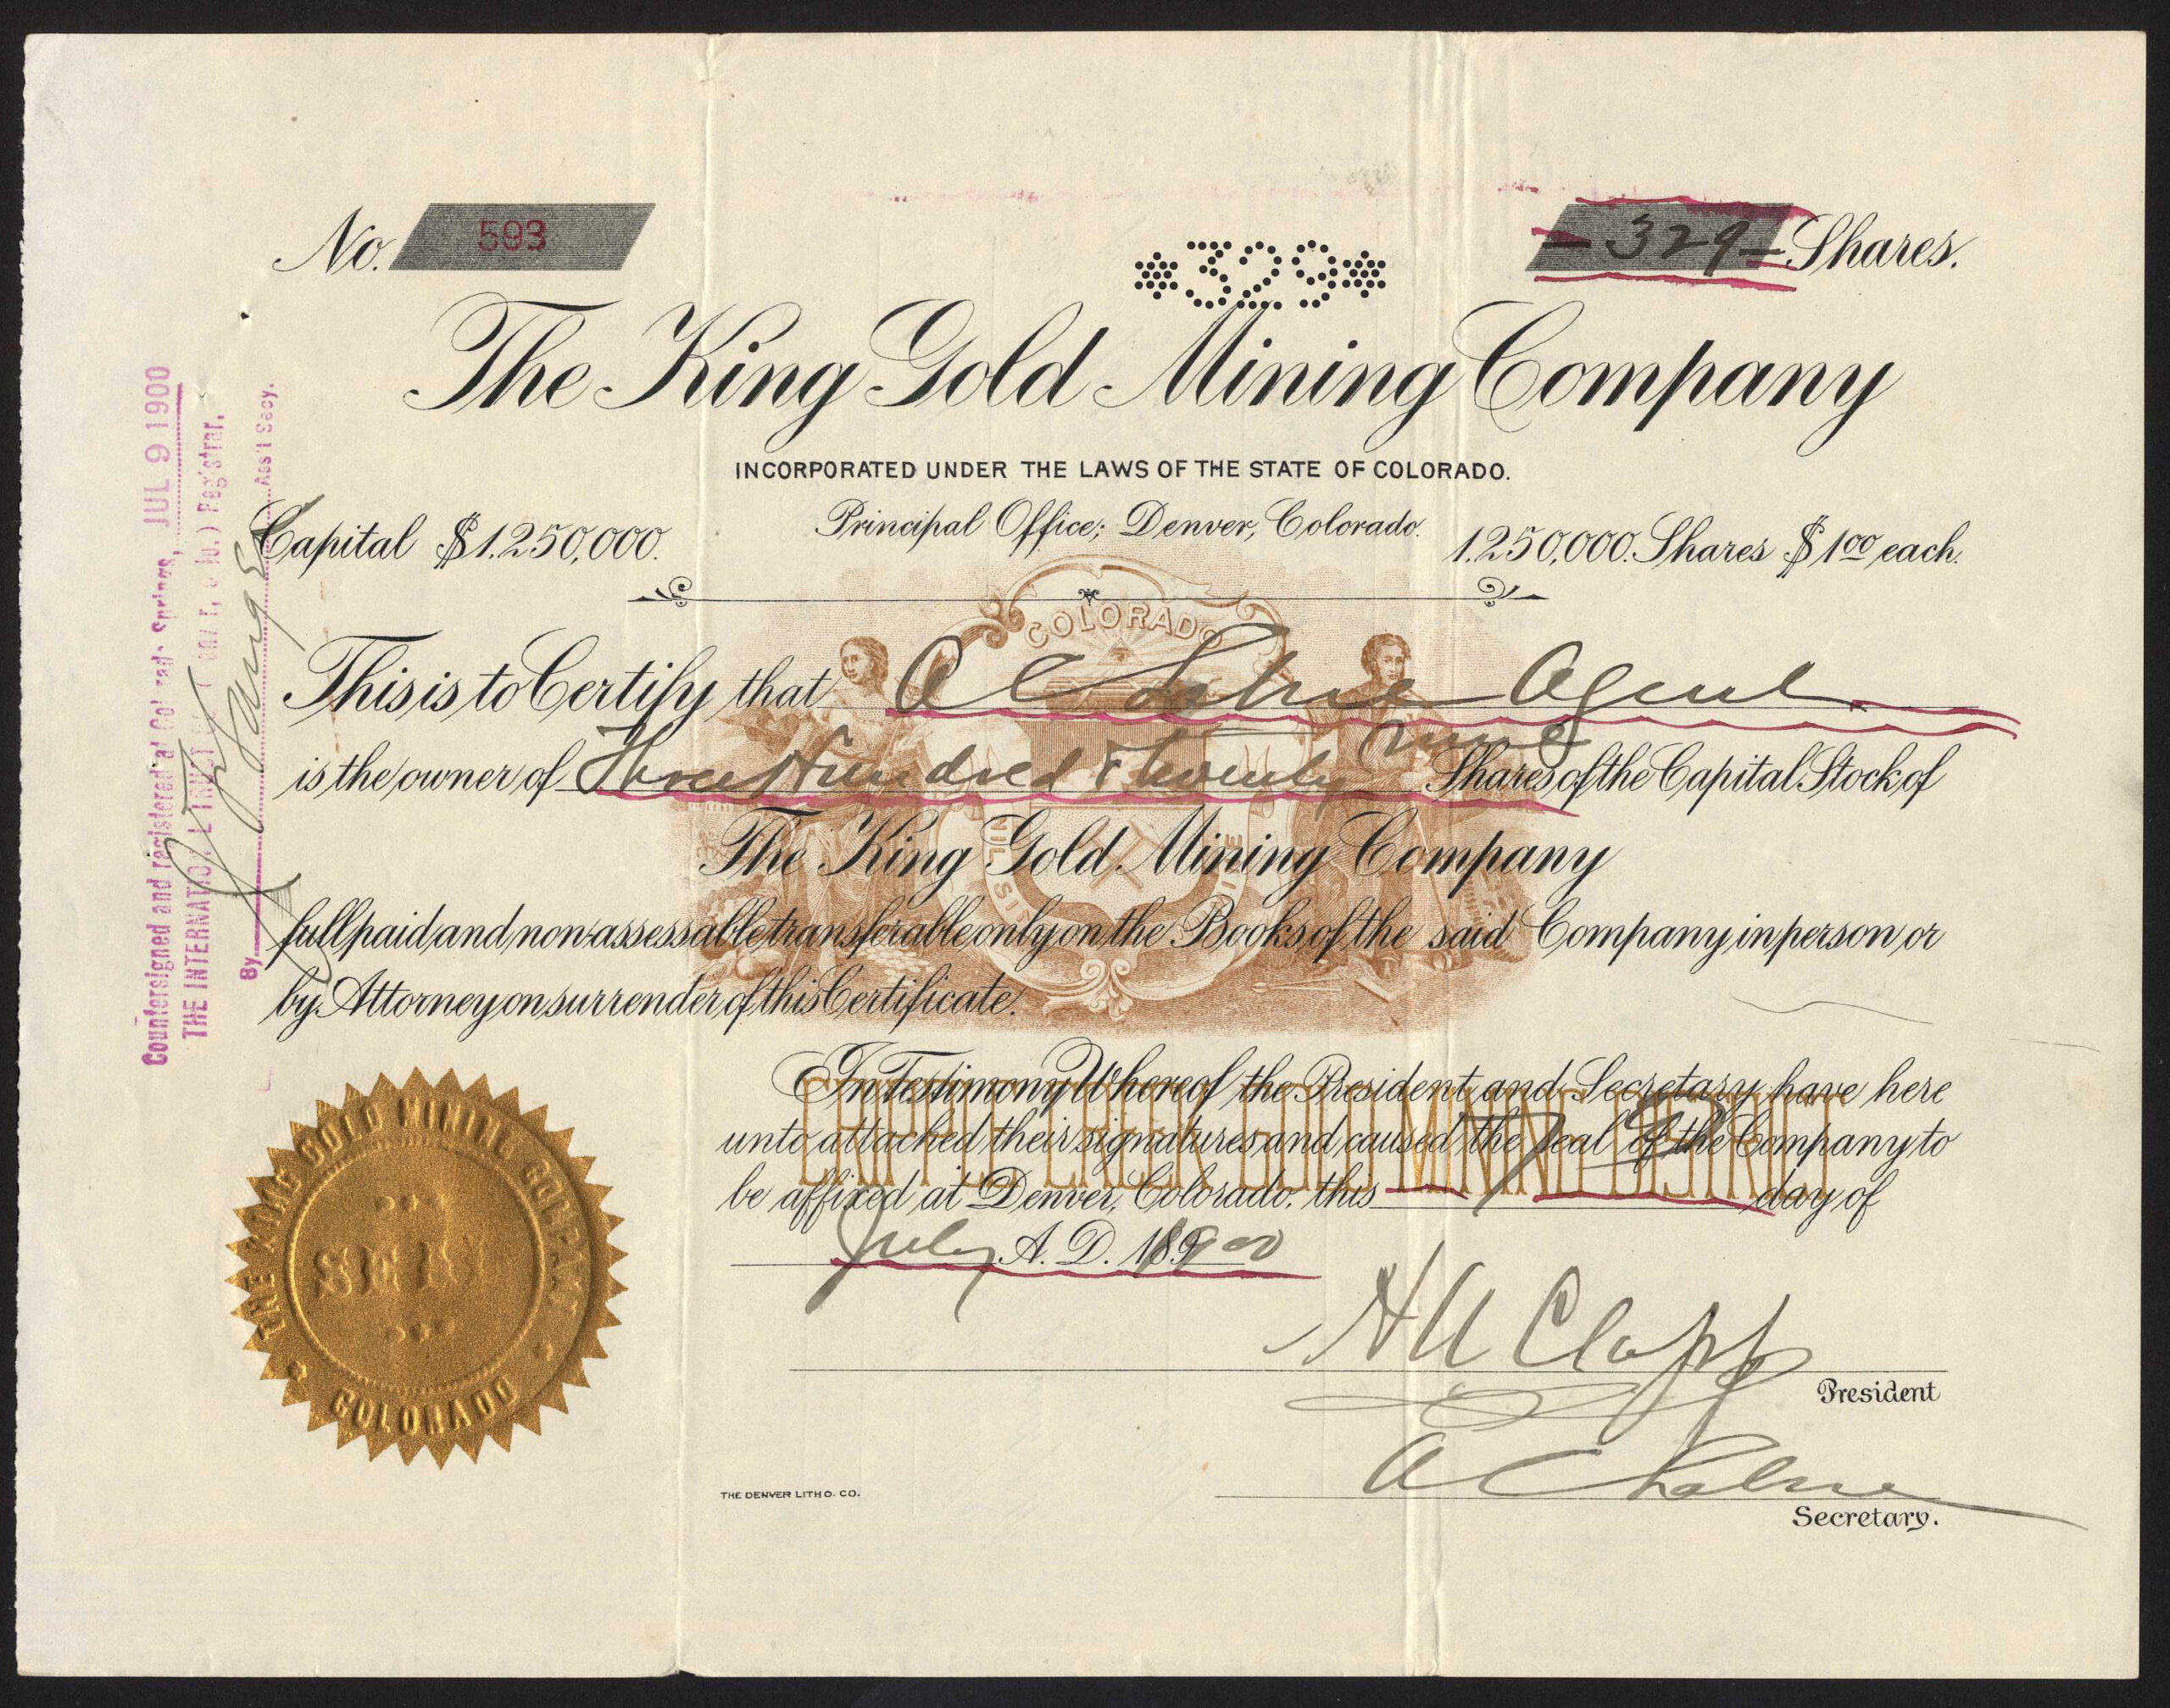 No. 593
*329*
- 329 - Shares.
The King Gold Mining Company
INCORPORATED UNDER THE LAWS OF THE STATE OF COLORADO.
Principal Office; Denver, Colorado.
Capital $1.250,000.
1.250,000. Shares $1 00 each.
COLORADO
This is to Certify that A C Agent
is the owner of Three Hundred & Twenty nine Shares of the Capital Stock of
The King Gold Mining Company
NIL SI
full paid and non-assessable transferable only on the Books of the said Company in person or
by Attorney on surrender of this Certificate.
In Testimony Whereof the President and Secretary have here
unto attached their signatures and caused the Seal of the Company to
be affixed at Denver, Colorado. this 7 day of
July A. D. 189 00
CRIPPLE CREEK GOLD MINING DISTRICT
H A Clapp
President
A C
Secretary.
THE DENVER LITHO. CO.
THE KING GOLD MINING COMPANY
SEAL
COLORADO
Countersigned and registered at Colorado Springs, JUL 9 1900
THE INTERNATIONAL TRUST Registrar.
By Ass't Secy.